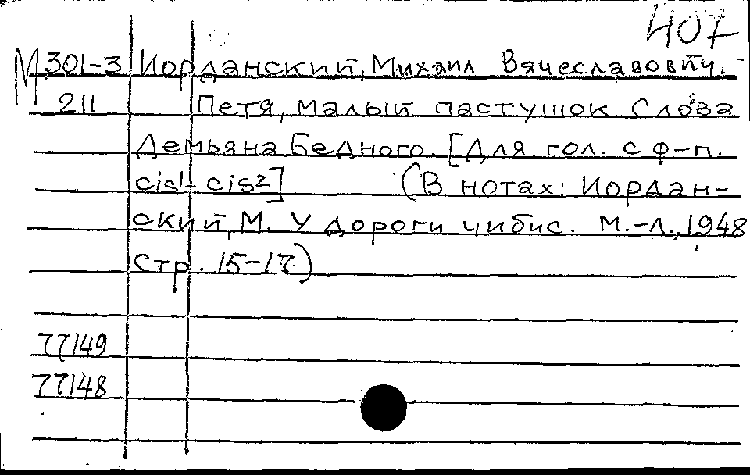 407
М 301-3 Иорданский, Михаил Вячеславович.
211 Петя, малый пастушок Слова
Демьяна Бедного. [Для гол. с ф-п.
cis1-cis2] (В нотах: Иордан-
ский, М. У дороги чибис. М.-Л., 1948
Стр. 15-17)
77149
77148